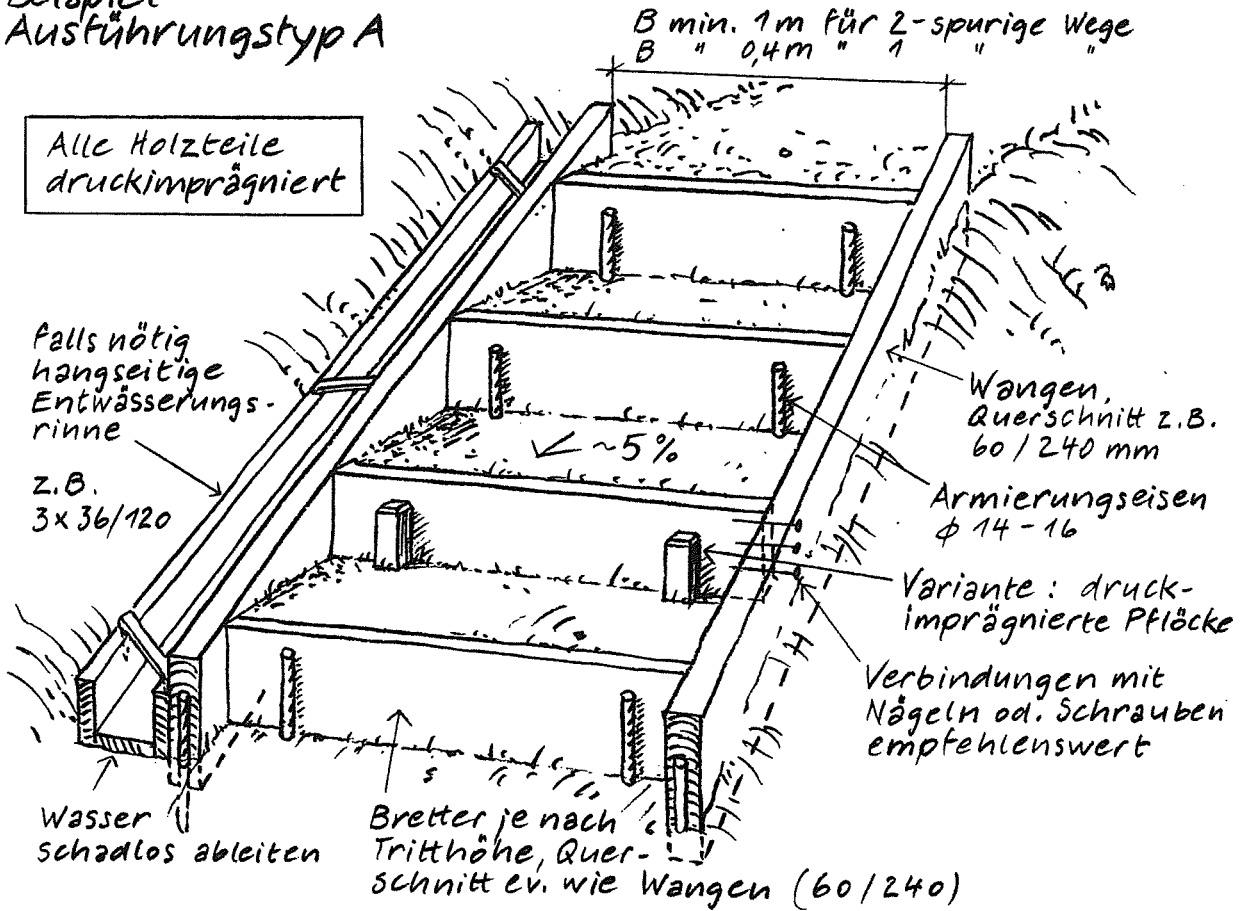 Beispiel
Ausführungstyp A
B min. 1m für 2-spurige Wege
B " 0,4m " 1 " "
Alle Holzteile
druckimprägniert
falls nötig
hangseitige
Entwässerungs-
rinne
z.B.
3x36/120
~5%
Wangen,
Querschnitt z.B.
60/240 mm
Armierungseisen
ϕ 14-16
Variante: druck-
imprägnierte Pflöcke
Verbindungen mit
Nägeln od. Schrauben
empfehlenswert
Wasser
schadlos ableiten
Bretter je nach
Tritthöhe, Quer-
schnitt ev. wie Wangen (60/240)